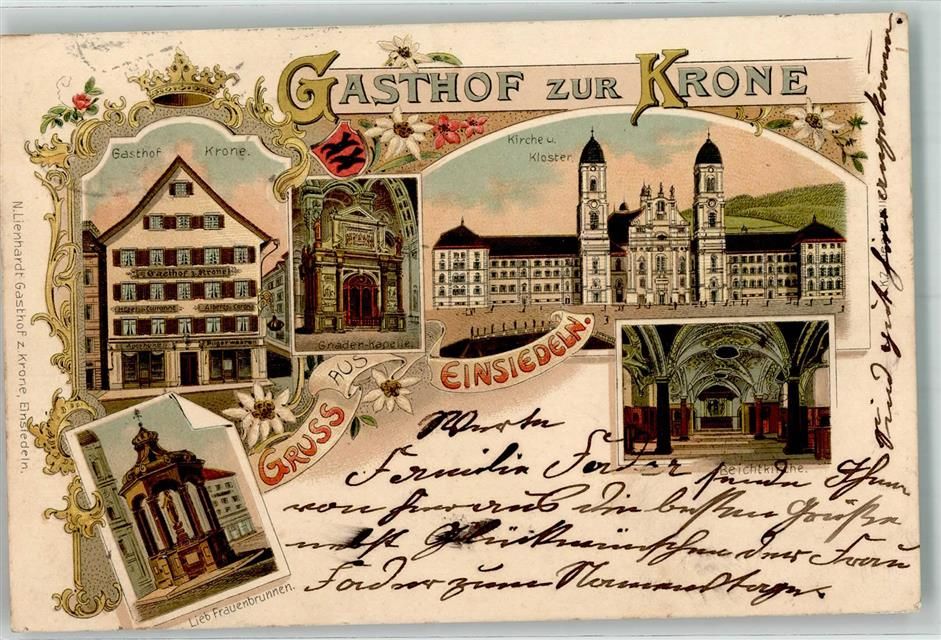 GASTHOF ZUR KRONE
Gasthof Krone.
Kirche u.
Kloster.
Gasthof z. Krone
Hôtel de la Couronne
Albergo Corona
Gnaden-Kapelle.
GRUSS AUS EINSIEDELN.
Beichtkirche.
Lieb Frauenbrunnen.
N. Lienhardt, Gasthof z. Krone, Einsiedeln.
Werte
Familie Forder sende Ihnen
von hier aus die besten Grüße
nebst Glückwünschen der Frau
Forder zum Namenstage
Sind gut hier angekommen